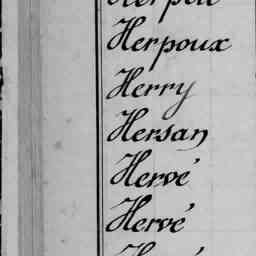 Herpoux
Herry
Hersan
Hervé
Hervé